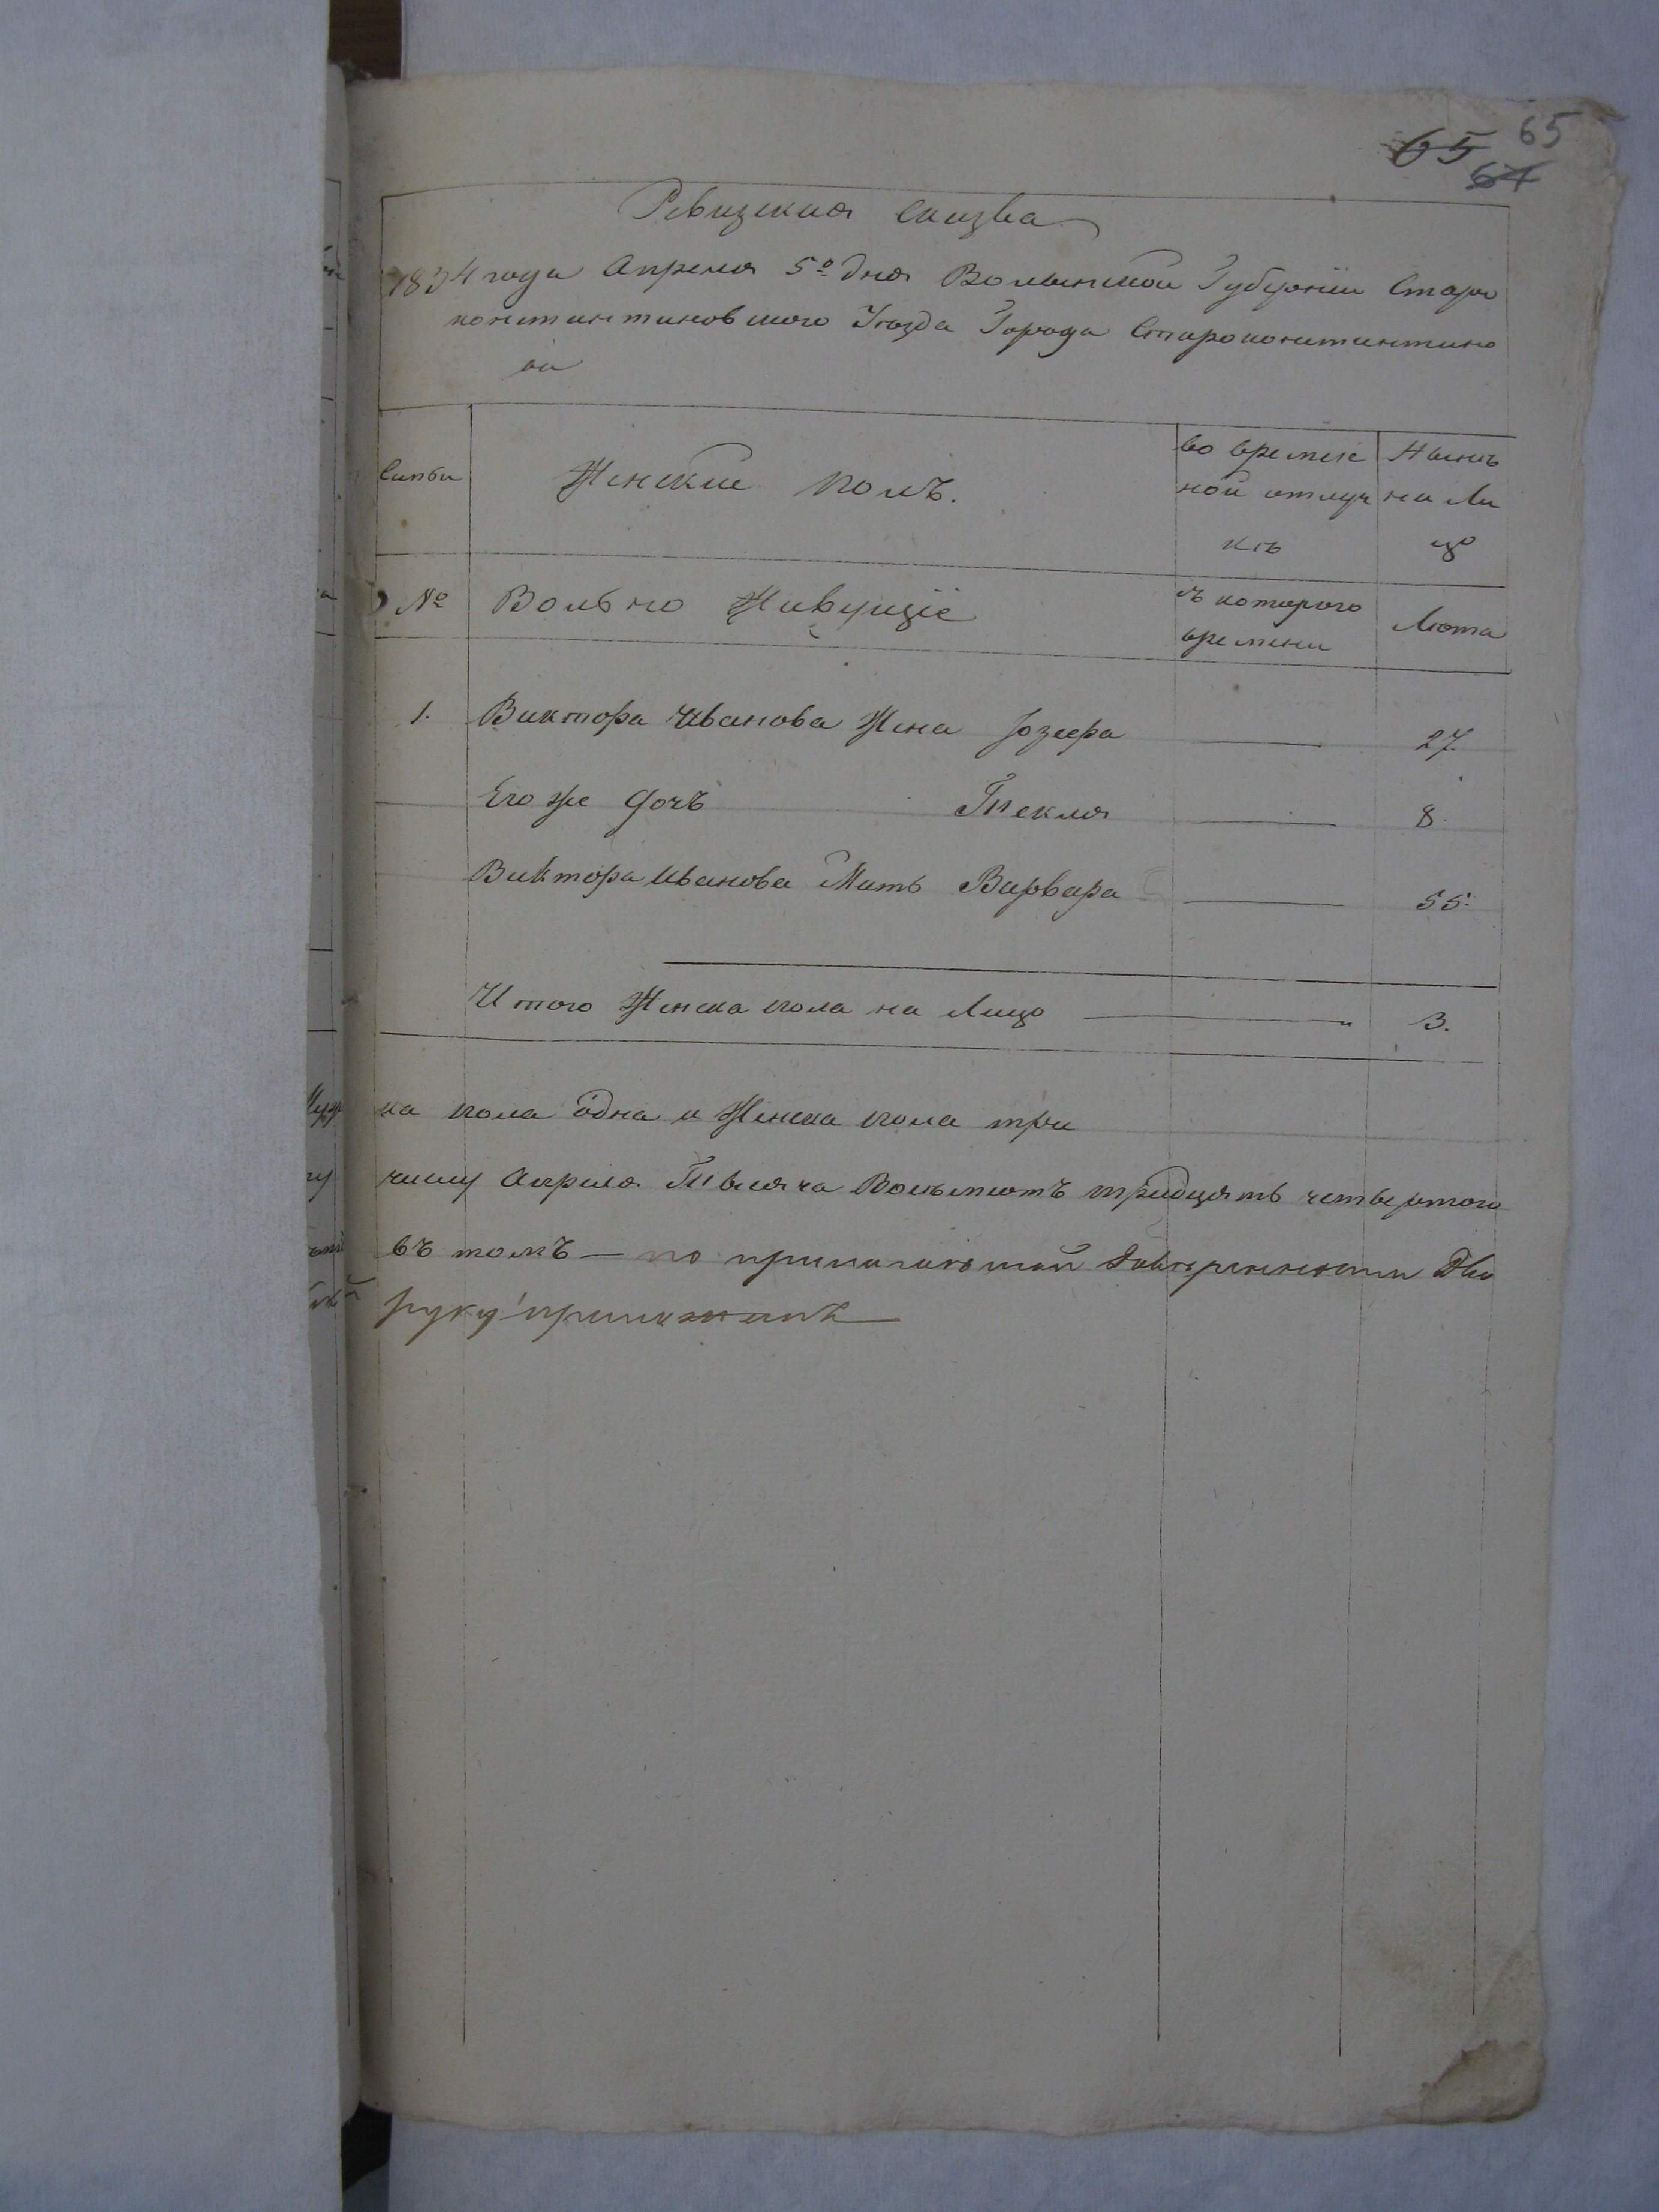 65 65
64
Ревизская Сказка
1834 года Апреля 5º дня Волынской Губернии Старо
константиновского Уезда Города Староконстантино
ва
Семьи
Женский полъ.
во времен
ной отлуч
кѣ
Нынѣ
на Ли
цо
№
Вольно Живущіе
съ которого
времени
Лета
1. Виктора Иванова Жена Іозефа 27.
Его же Дочъ Текля 8.
Виктора Иванова Мать Варвара 55.
Итого Женска пола на Лицо 3.
ка пола одна и Женска пола три
Апреля Тысяча Восьмсотъ тридцять четвертого
въ томъ — по
руку приложилъ